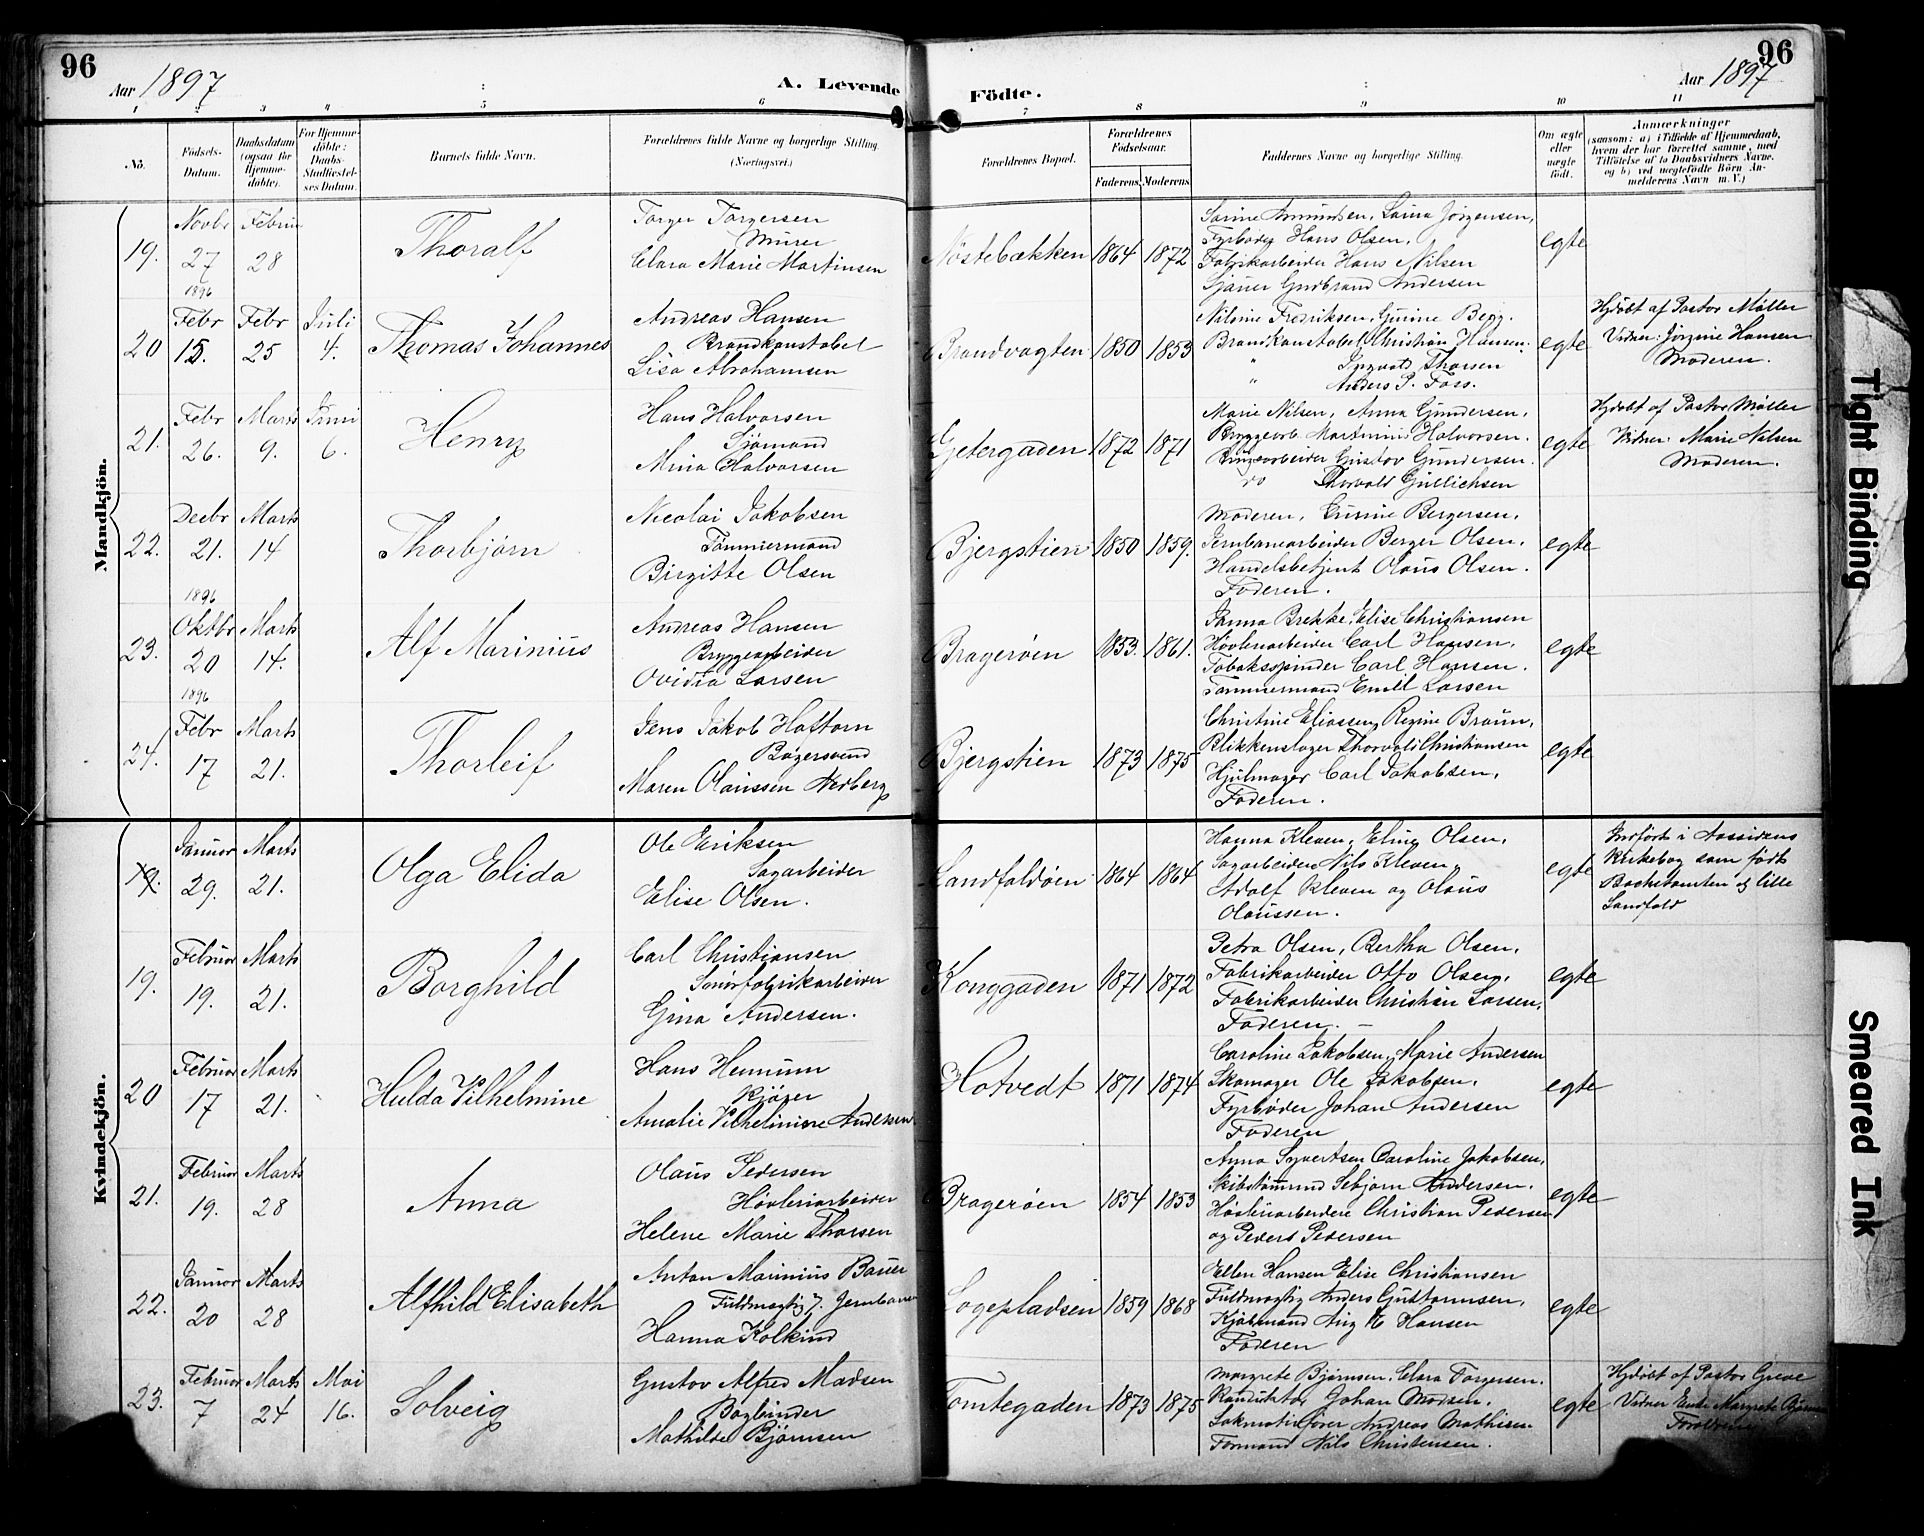 96
Aar 1897
A. Levende
Födte.
Aar 1897
96
1 2 3 4 5 6 7 8 9 10 11
No.
Födsels-
Datum.
Daabsdatum
(ogsaa for
Hjemme-
döbte).
For Hjemme-
döbte:
Daabs-
Stadfæstel-
ses Datum.
Barnets fulde Navn.
Forældrenes fulde Navne og borgerlige Stilling.
(Næringsvei.)
Forældrenes Bopæl.
Forældrenes
Födselsaar.
Faderens. Moderens.
Faddernes Navne og borgerlige Stilling.
Om ægte
eller
uægte
födt.
Anmærkninger
(saasom: a) i Tilfælde af Hjemmedaab,
hvem der har forrettet samme, med
Tilföielse af to Daabsvidners Navne,
og b) ved uægtefödte Börn An-
melderens Navn m. V.)
Mandkjön.
19.
Novbr
27
1896
Februar
28
Thoralf
Torger Torgersen
Murer
Clara Marie Martinsen
Nøstebækken
1864
1872
Sarine Amundsen, Laura Jörgensen,
Fyrbøder Hans Olsen,
Fabrikarbeider Hans Nilsen
Sjauer Gudbrand Andersen
egte
20
Febr
15.
Febr
25
Juli
4.
Thomas Johannes
Andreas Hansen
Brandkonstabel
Lisa Abrahamsen
Brandvagten
1850
1853
Nilsine Fredriksen, Gunine Berg.
Brandkonstabel Christian Hansen.
" Ingvald Thorsen
" Anders P. Foss.
egte
Hjdøbt af Pastor Møller
Vidner: Jörgine Hansen
Moderen.
21.
Febr
26.
Marts
9.
Juni
6.
Henry
Hans Halvorsen
Sjömand
Mina Halvorsen
Gjetergaden
1872
1871
Marie Nilsen, Anna Gundersen,
Bryggearb. Martinius Halvorsen.
Brugsarbeider Gustav Gundersen.
do Thorvald Gullichsen
egte
Hjdøbt af Pastor Møller
Vidner: Marie Nilsen
Moderen.
22.
Decbr
21.
1896
Marts
14
Thorbjørn
Nicolai Jakobsen
Tømmermand
Birgitte Olsen
Bjergstien
1850
1859.
Moderen, Gusine Bergersen,
Jernbanearbeider Berger Olsen,
Handelsbetjent Olaus Olsen.
Faderen.
egte
23.
Oktbr
20
1896
Marts
14.
Alf Marinius
Andreas Hansen
Bryggearbeider
Ovidia Larsen
Bragerøen
1853.
1861.
Janna Brekke, Elise Christiansen
Høvleriarbeider Carl Hansen,
Tobaksspinder Carl Hansen.
Tømmermand Emil Larsen
egte
24.
Febr
17
Marts
21.
Thorleif
Jens Jakob Hafton
Bøgersvend
Maren Olaussen Norberg
Bjergstien
1873
1875
Christine Eliassen, Regine Braun,
Blikkenslager Thorvald Christiansen
Hjulmager Carl Jakobsen,
Faderen.
egte
Kvindekjön.
19.
Januar
29.
Marts
21.
Olga Elida
Ole Eriksen
Sagarbeider
Elise Olsen.
Landfaldøen
1864
1864
Hanna Kleven, Eline Olsen,
Sagarbeidere Nils Kleven,
Adolf Kleven og Olaus
Olaussen.
egte
Indført i Aassidens
Kirkebog som født
Bachetomten af lille
Landfald
19.
Februar
19.
Marts
21.
Borghild
Carl Christiansen
Snørfabrikarbeider
Gina Andersen.
Konggaden
1871
1872
Petra Olsen, Bertha Olsen,
Fabrikarbeider Otto Olsen,
Fabrikarbeider Christian Larsen,
Faderen.
egte
20
Februar
17
Marts
21.
Hulda Vilhelmine
Hans Hemum
Kjører
Amalie Vilhelmine Andersen
Hotvedt
1871
1874
Caroline Jakobsen, Marie Andersen
Skomager Ole Jakobsen,
Fyrbøder Johan Andersen
Faderen
egte
21.
Februar
19.
Marts
28
Anna
Olaus Pedersen
Høvleriarbeider
Helene Marie Thorsen
Bragerøen
1854
1853
Anna Syvertsen Caroline Jakobsen,
Skibstømmmd Sebjørn Andersen.
Høvleriarbeidere Christian Pedersen
og Peder Pedersen
egte
22.
Januar
20
Marts
28
Alfhild Elisabeth
Anton Marinius Bauer
Fuldmægtig v. Jernbanen
Hanna Kolkind
Logepladsen
1859
1868
Ellen Hansen Elise Christiansen
Fuldmægtig Anders Guttormsen,
Kjøbmand Aug E Hansen
Faderen
egte
23.
Februar
7
Marts
24
Mai
16.
Solveig
Gustav Alfred Madsen
Bogbinder
Mathilde Bjørnsen
Tomtegaden
1873
1875
Margrete Bjørnsen, Clara Torgersen.
Johan Madsen.
Lokmotivfører Andreas Mathisen
Formand Nils Christensen.
egte
Hjdøbt af Pastor Greve
Vidner Margrete
Tight Binding
Smeared Ink